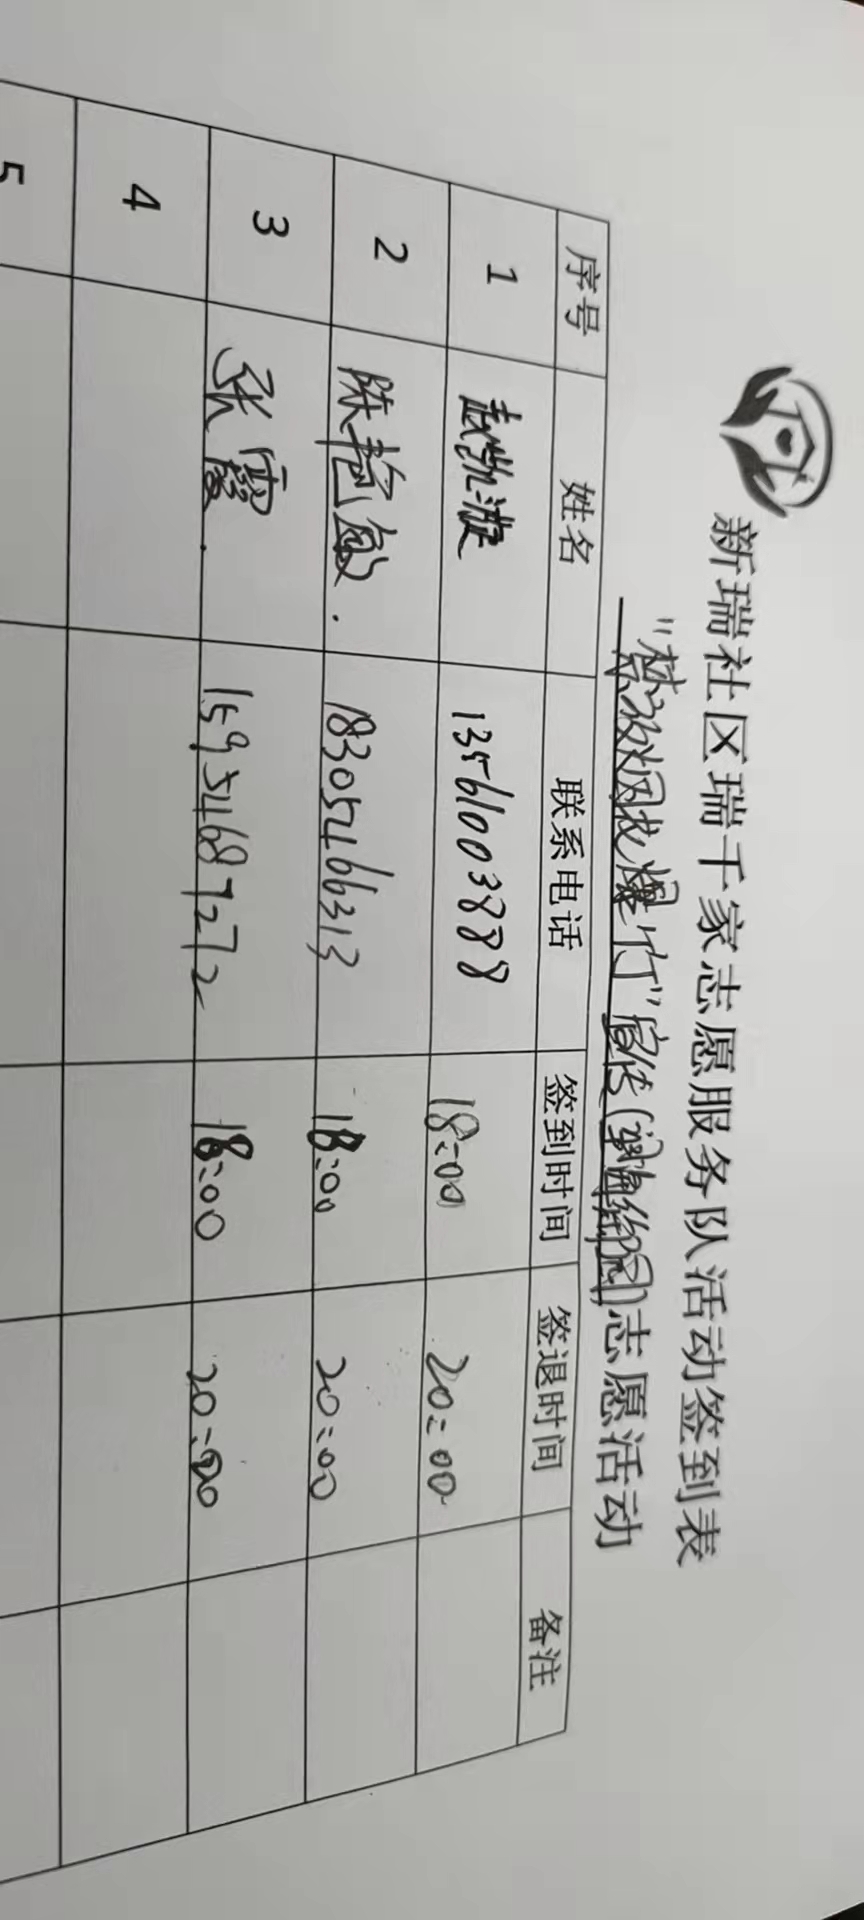 新瑞社区瑞千家志愿服务队活动签到表
"禁放烟花爆竹"宣传()志愿活动
序号 姓名 联系电话 签到时间 签退时间 备注
1 赵凯波 13561003888 18:00 20:00
2 陈艳敏. 18305466313 18:00 20:00
3 张霞. 15954689272 18:00 20:00
4
5